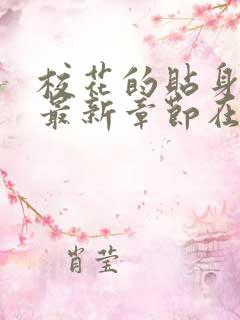 校花的贴身
最新章节在
肖莹